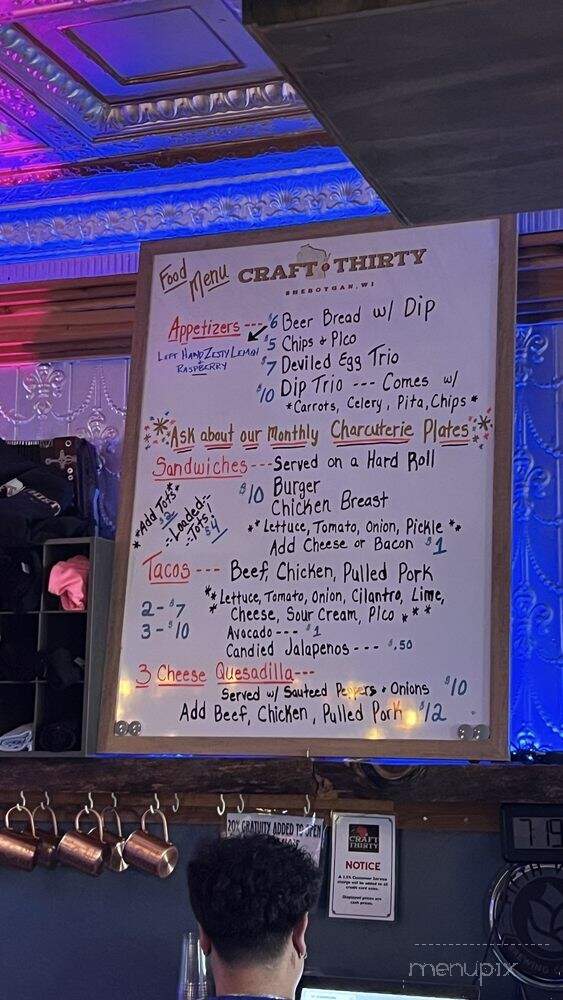 Food Menu
CRAFT THIRTY
SHEBOYGAN, WI
Appetizers --- $6 Beer Bread w/ Dip
LEFT HAND ZESTY LEMON
+ RASPBERRY
$5 Chips + Pico
$7 Deviled Egg Trio
$10 Dip Trio --- Comes w/
*Carrots, Celery, Pita, Chips*
*Ask about our Monthly Charcuterie Plates*
Sandwiches --- Served on a Hard Roll
*Add Tots*
$2
Loaded
Tots!
$4
$10 Burger
Chicken Breast
** Lettuce, Tomato, Onion, Pickle **
Add Cheese or Bacon $1
Tacos --- Beef, Chicken, Pulled Pork
2 - $7
3 - $10
** Lettuce, Tomato, Onion, Cilantro, Lime,
* Cheese, Sour Cream, Pico ***
Avocado --- $1
Candied Jalapenos --- $.50
3 Cheese Quesadilla ---
Served w/ Sauteed Peppers + Onions $10
Add Beef, Chicken, Pulled Pork $12
20% GRATUITY ADDED TO OPEN
CRAFT
THIRTY
NOTICE
A 3.5% Customer Service
charge will be added to all
credit card sales.
Displayed prices are
cash prices.
menupix